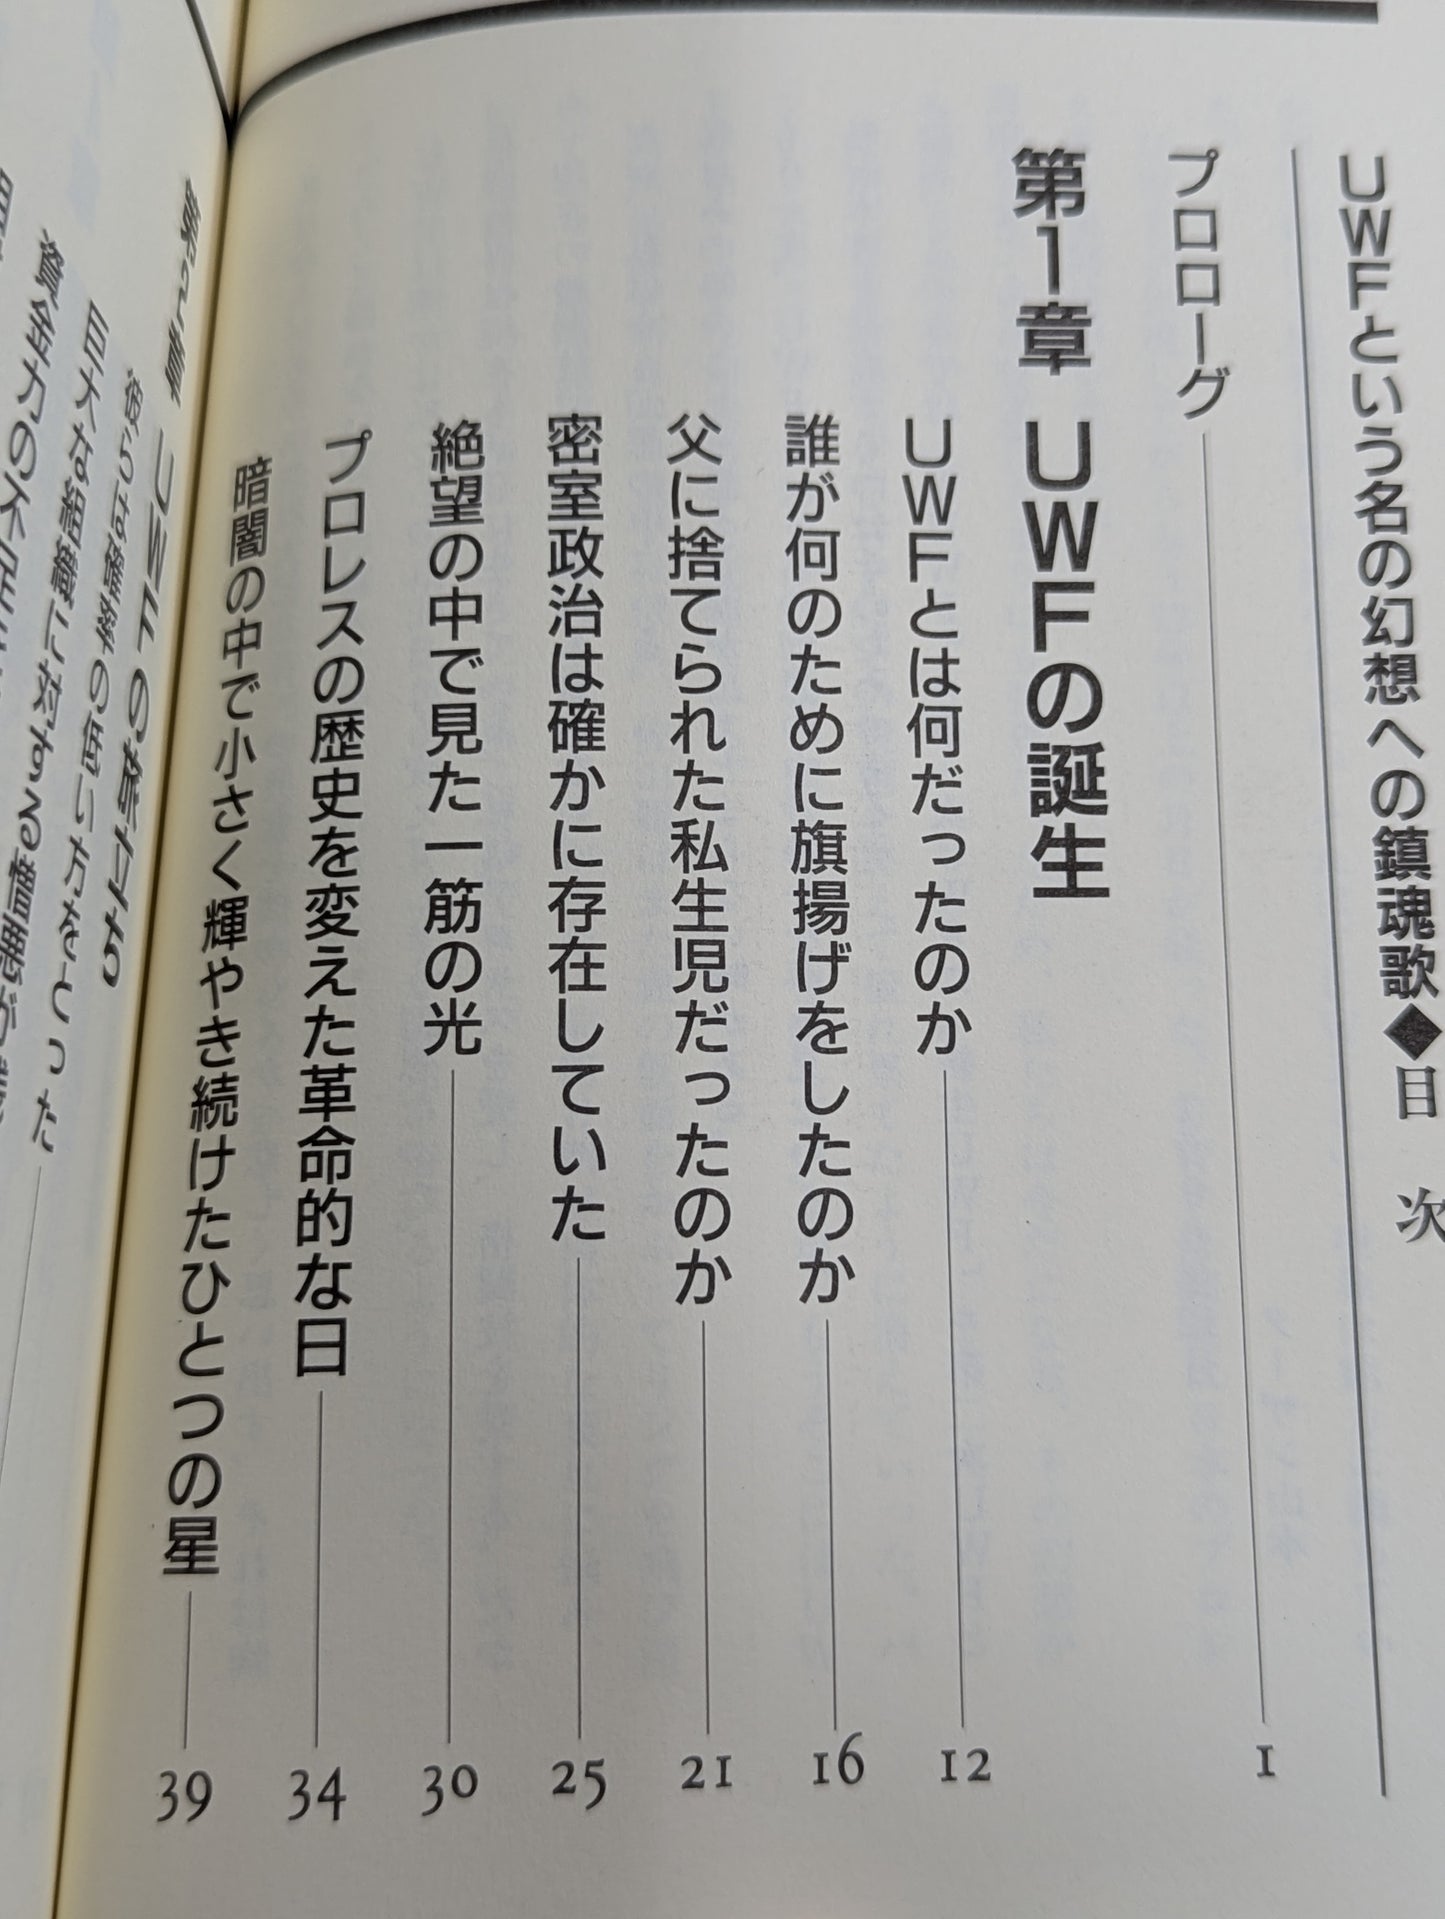 UWFという名の幻想への鎮魂歌◆目 次
プロローグ 1
第1章 UWFの誕生
UWFとは何だったのか 12
誰が何のために旗揚げをしたのか 16
父に捨てられた私生児だったのか 21
密室政治は確かに存在していた 25
絶望の中で見た一筋の光 30
プロレスの歴史を変えた革命的な日 34
暗闇の中で小さく輝やき続けたひとつの星 39
巨大な組織に対する